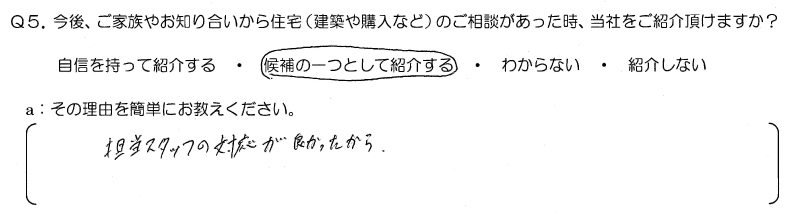 Q5. 今後、ご家族やお知り合いから住宅(建築や購入など)のご相談があった時、当社をご紹介頂けますか?
自信を持って紹介する ・ 候補の一つとして紹介する ・ わからない ・ 紹介しない
a:その理由を簡単にお教えください。
担当スタッフの対応が良かったから.